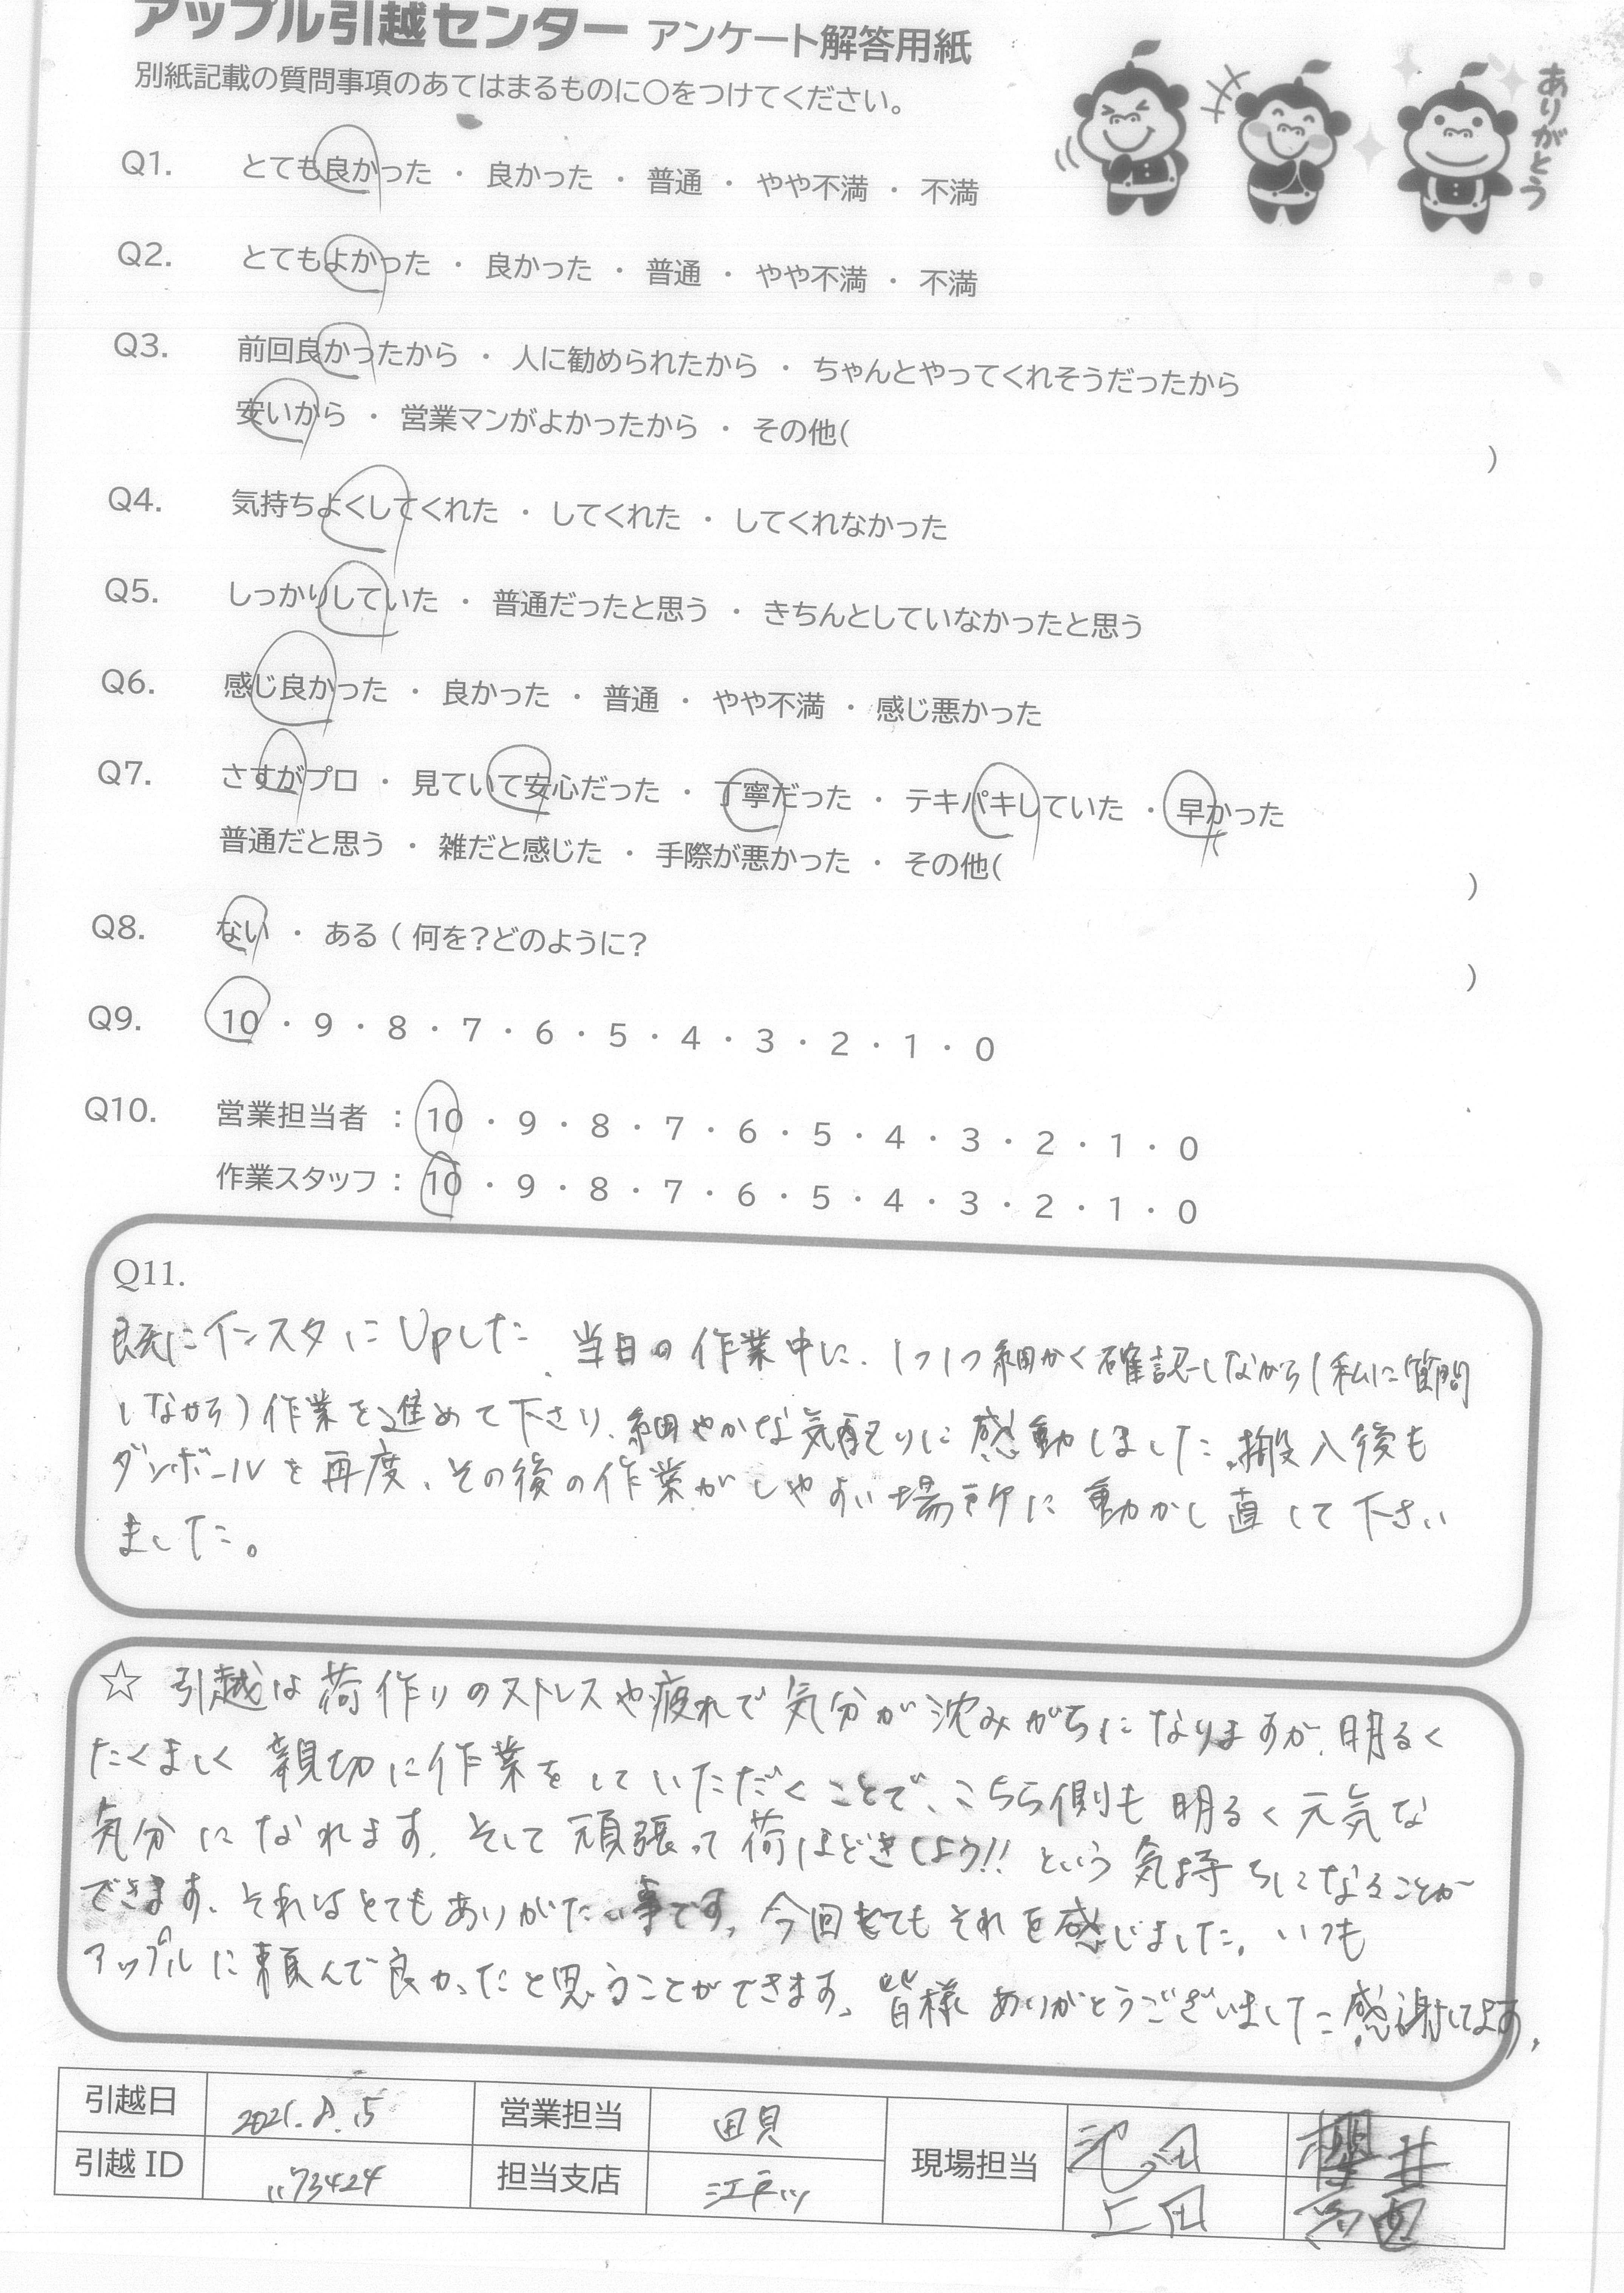 アップル引越センター アンケート解答用紙
別紙記載の質問事項のあてはまるものに〇をつけてください。
ありがとう
Q1. とても良かった ・ 良かった ・ 普通 ・ やや不満 ・ 不満
Q2. とてもよかった ・ 良かった ・ 普通 ・ やや不満 ・ 不満
Q3. 前回良かったから ・ 人に勧められたから ・ ちゃんとやってくれそうだったから
安いから ・ 営業マンがよかったから ・ その他( )
Q4. 気持ちよくしてくれた ・ してくれた ・ してくれなかった
Q5. しっかりしていた ・ 普通だったと思う ・ きちんとしていなかったと思う
Q6. 感じ良かった ・ 良かった ・ 普通 ・ やや不満 ・ 感じ悪かった
Q7. さすがプロ ・ 見ていて安心だった ・ 丁寧だった ・ テキパキしていた ・ 早かった
普通だと思う ・ 雑だと感じた ・ 手際が悪かった ・ その他( )
Q8. ない ・ ある ( 何を?どのように? )
Q9. 10 ・ 9 ・ 8 ・ 7 ・ 6 ・ 5 ・ 4 ・ 3 ・ 2 ・ 1 ・ 0
Q10. 営業担当者 : 10 ・ 9 ・ 8 ・ 7 ・ 6 ・ 5 ・ 4 ・ 3 ・ 2 ・ 1 ・ 0
作業スタッフ : 10 ・ 9 ・ 8 ・ 7 ・ 6 ・ 5 ・ 4 ・ 3 ・ 2 ・ 1 ・ 0
Q11.
既にインスタにUpした、当日の作業中に、1つ1つ細かく確認しながら(私に質問
しながら)作業を進めて下さり、細やかな気配りに感動しました。搬入後も
ダンボールを再度、その後の作業がしやすい場所に動かし直して下さい
ました。
☆ 引越は荷作りのストレスや疲れで気分が沈みがちになりますが、明るく
たくましく親切に作業をしていただくことで、こちら側も明るく元気な
気分になれます。そして頑張って荷ほどきしよう!! という気持ちになることが
できます。それはとてもありがたい事です。今回もとてもそれを感じました。いつも
アップルに頼んで良かったと思うことができます。皆様ありがとうございました。感謝してます。
引越日 営業担当 現場担当 池田 櫻井
引越 ID 1173424 担当支店 江戸川 上田 葛西